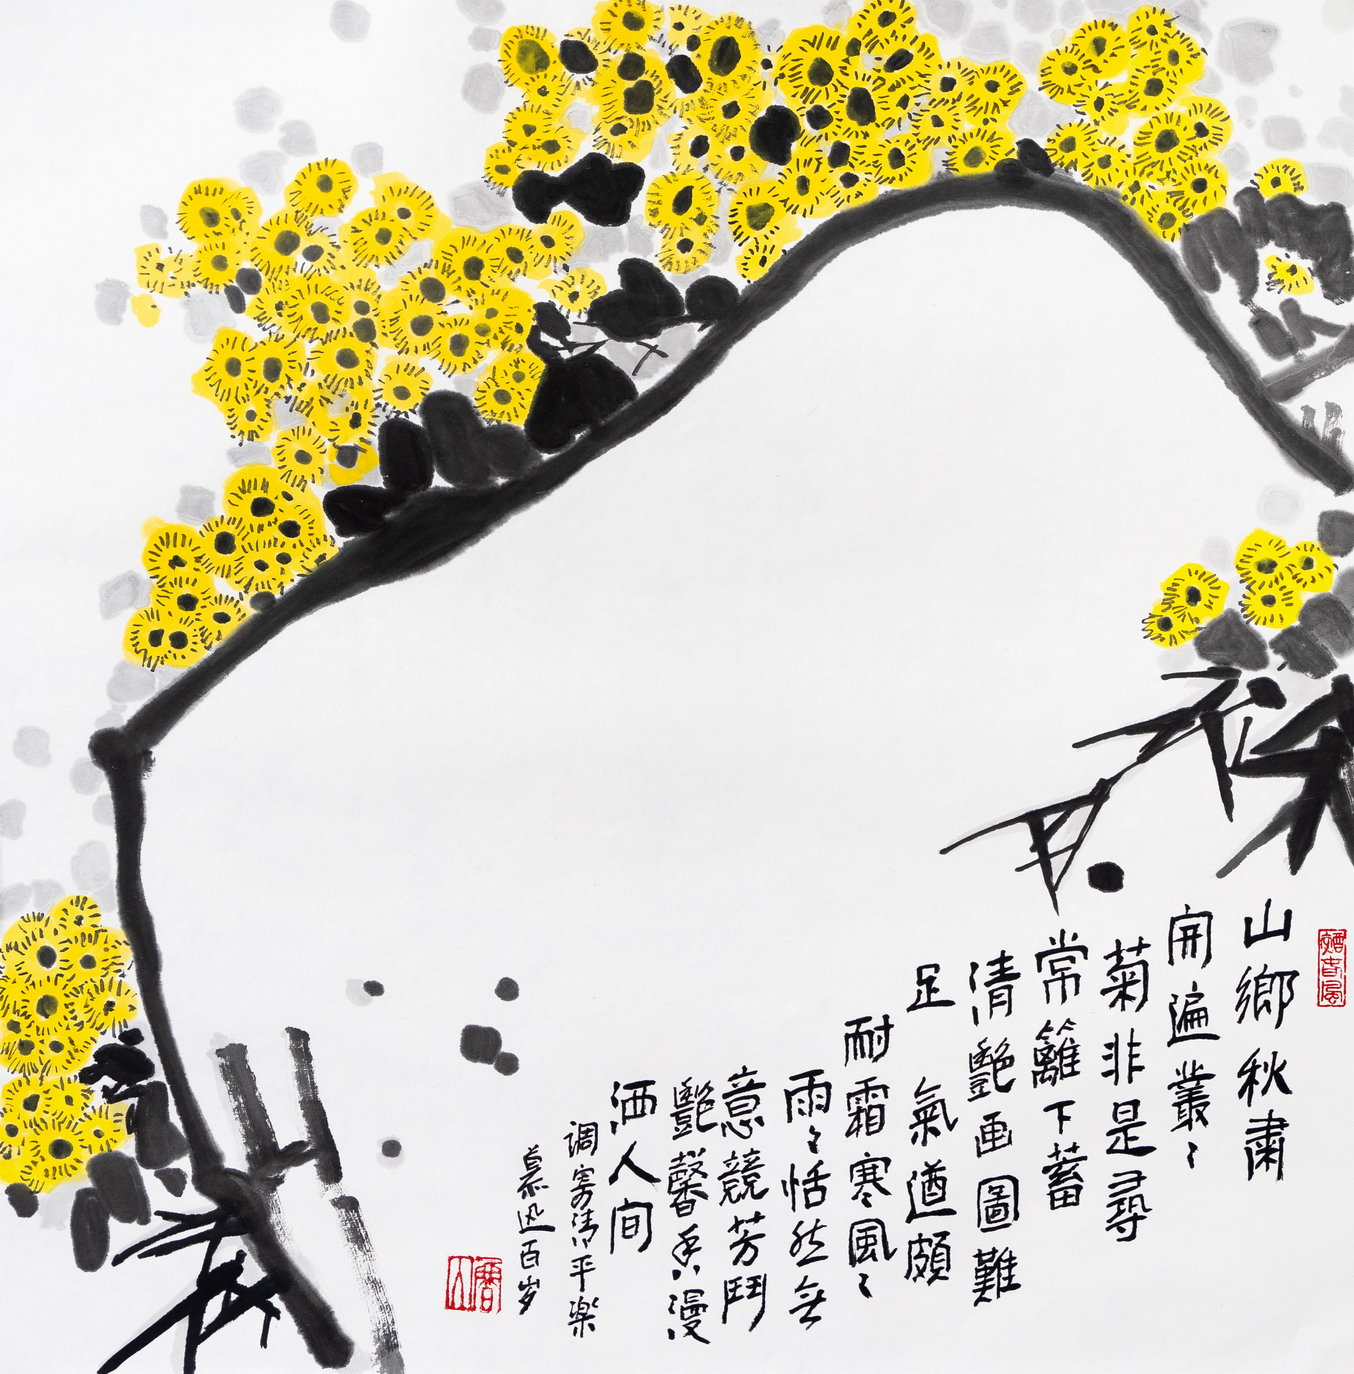 山鄉秋肅
開遍叢〻
菊非是尋
常籬下蓄
清艷画圖難
足 氣遒頗
耐霜寒風〻
雨〻恬然无
意競芳鬥
艷馨香漫
洒人间
调寄清平楽
慕迅百岁